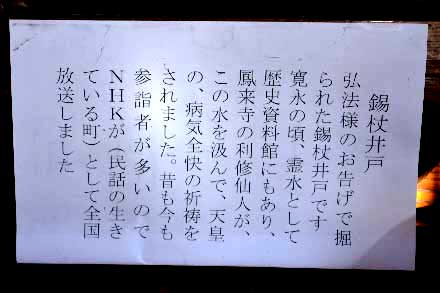 錫杖井戸
弘法様のお告げで掘
られた錫杖井戸です
寛永の頃、霊水として
歴史資料館にもあり、
鳳来寺の利修仙人が、
この水を汲んで、天皇
の、病気全快の祈祷を
されました。昔も今も
参詣者が多いので
NHKが（民話の生き
ている町）として全国
放送しました